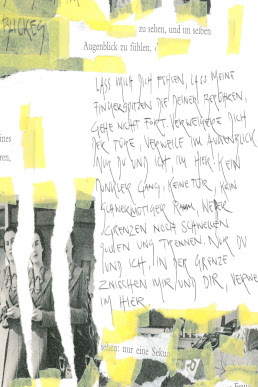 BLICKES
zu sehen, und im selben
Augenblick zu fühlen,
LASS MICH DICH FÜHLEN, LASS MEINE
FINGERSPITZEN DIE DEINEN BERÜHREN,
GEHE NICHT FORT, VERWEIGERE DICH
DER TÜRE, VERWEILE IM AUGENBLICK
NUR DU UND ICH, IM HIER. KEIN
DUNKLER GANG, KEINE TÜR, KEIN
SCHWERMÜTIGER RAUM, WEDER
GRENZEN NOCH SCHWELLEN
UND TRENNEN. NUR DU
UND ICH, IN DER GRENZE
ZWISCHEN MIR UND DIR, VERWE
IM HIER.
ines
ren,
sehen: nur eine Seku